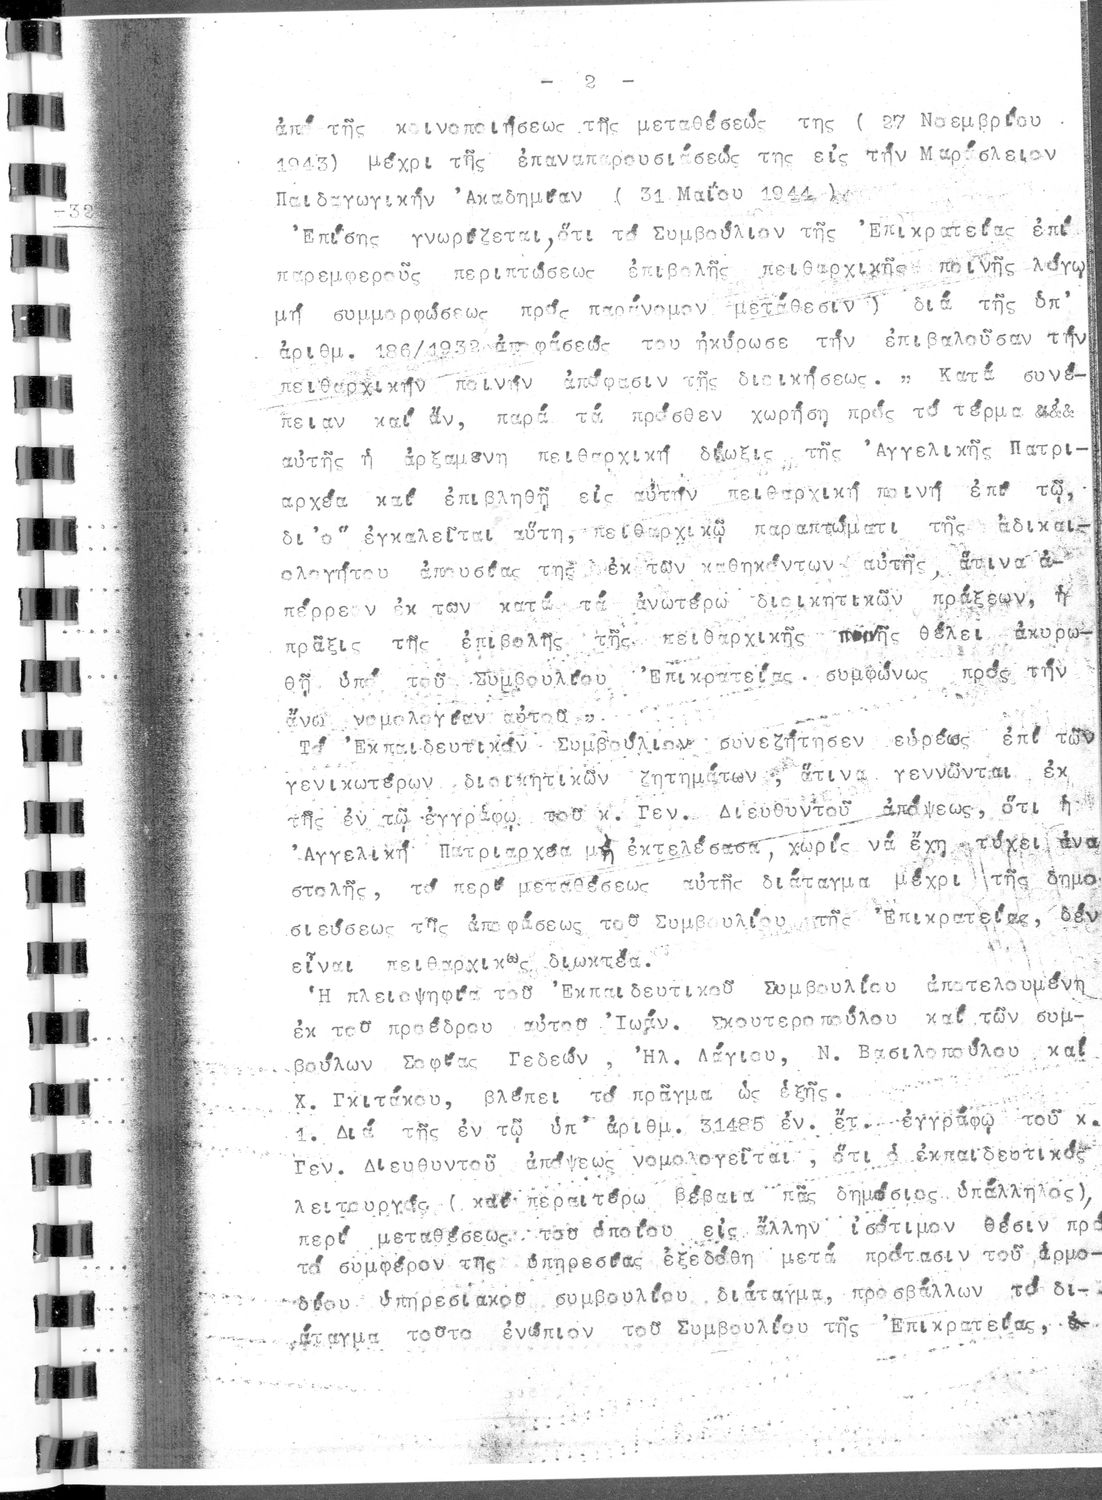 - 2 -
ἀπό τῆς κοινοποιήσεως τῆς μεταθέσεώς της ( 27 Νοεμβρίου
1943) μέχρι τῆς ἐπαναπαρουσιάσεώς της εἰς τήν Μαράσλειον
Παιδαγωγικήν Ἀκαδημίαν ( 31 Μαΐου 1944 ).
-32
Ἐπίσης γνωρίζεται, ὅτι τό Συμβούλιον τῆς Ἐπικρατείας ἐπί
παρεμφεροῦς περιπτώσεως ἐπιβολῆς πειθαρχικῆς ποινῆς λόγῳ
μή συμμορφώσεως πρός παράνομον μετάθεσιν ) διά τῆς ὑπ'
ἀριθμ. 186/1932 ἀποφάσεώς του ἠκύρωσε τήν ἐπιβαλοῦσαν τήν
πειθαρχικήν ποινήν ἀπόφασιν τῆς διοικήσεως. " Κατά συνέ-
πειαν καί ἄν, παρά τά πρόσθεν χωρήσῃ πρός τό τέρμα
αὐτῆς ἡ ἀρξαμένη πειθαρχική δίωξις τῆς Ἀγγελικῆς Πατρι-
αρχέα καί ἐπιβληθῇ εἰς αὐτήν πειθαρχική ποινή ἐπί τῷ,
δι'ὅ ἐγκαλεῖται αὕτη, πειθαρχικῷ παραπτώματι τῆς ἀδικαι-
ολογήτου ἀπουσίας της ἐκ τῶν καθηκόντων αὐτῆς, ἅτινα ἀ-
πέρρεον ἐκ των κατά τά ἀνωτέρω διοικητικῶν πράξεων, ἡ
πρᾶξις τῆς ἐπιβολῆς τῆς πειθαρχικῆς ποινῆς θέλει ἀκυρω-
θῆ ὑπό τοῦ Συμβουλίου Ἐπικρατείας συμφώνως πρός τήν
ἄνω νομολογίαν αὐτοῦ ".
Τό Ἐκπαιδευτικόν Συμβούλιον συνεζήτησεν εὐρέως ἐπί τῶν
γενικωτέρων διοικητικῶν ζητημάτων, ἅτινα γεννῶνται ἐκ
τῆς ἐν τῷ ἐγγράφῳ τοῦ κ. Γεν. Διευθυντοῦ ἀπόψεως, ὅτι ἡ
Ἀγγελική Πατριαρχέα μή ἐκτελέσασα, χωρίς νά ἔχη τύχει ἀνα
στολῆς, τό περί μεταθέσεως αὐτῆς διάταγμα μέχρι τῆς δημο
σιεύσεως τῆς ἀποφάσεως τοῦ Συμβουλίου τῆς Ἐπικρατείας, δέν
εἶναι πειθαρχικῶς διωκτέα.
Ἡ πλειοψηφία τοῦ Ἐκπαιδευτικοῦ Συμβουλίου ἀποτελουμένη
ἐκ τοῦ προέδρου αὐτοῦ Ἰωάν. Σκουτεροπούλου καί τῶν συμ-
βούλων Σοφίας Γεδεών , Ἠλ. Λάγιου, Ν. Βασιλοπούλου καί
Χ. Γκιτάκου, βλέπει τό πρᾶγμα ὡς ἑξῆς.
1. Διά τῆς ἐν τῷ ὑπ' ἀριθμ. 31485 ἐν. ἔτ. ἐγγράφῳ τοῦ κ.
Γεν. Διευθυντοῦ ἀπόψεως νομολογεῖται , ὅτι ὁ ἐκπαιδευτικός
λειτουργός ( καί περαιτέρω βέβαια πᾶς δημόσιος ὑπάλληλος),
περί μεταθέσεως τοῦ ὁποίου εἰς ἄλλην ἰσότιμον θέσιν πρό
τό συμφέρον τῆς ὑπηρεσίας ἐξεδόθη μετά πρότασιν τοῦ ἁρμο-
δίου ὑπηρεσιακοῦ συμβουλίου διάταγμα, προσβάλλων τό δι-
άταγμα τοῦτο ἐνώπιον τοῦ Συμβουλίου τῆς Ἐπικρατείας,